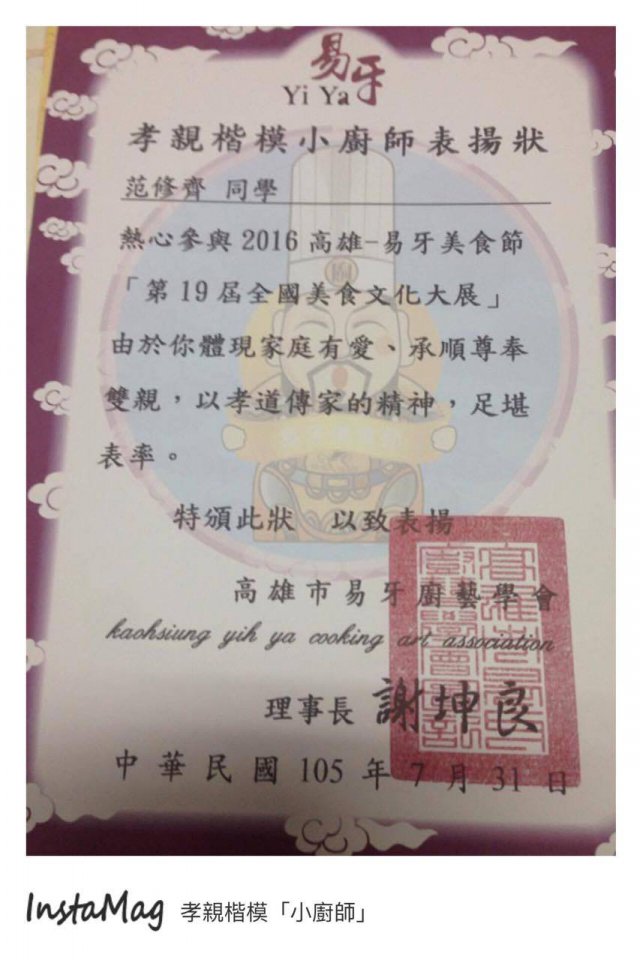 易牙
Yi Ya
孝親楷模小廚師表揚狀
范修齊 同學
熱心參與2016高雄-易牙美食節
「第19屆全國美食文化大展」
由於你體現家庭有愛、承順尊奉
雙親，以孝道傳家的精神，足堪
表率。
特頒此狀 以致表揚
高雄市易牙廚藝學會
kaohsiung yih ya cooking art association
理事長 謝坤良
中華民國105年7月31日
InstaMag 孝親楷模「小廚師」